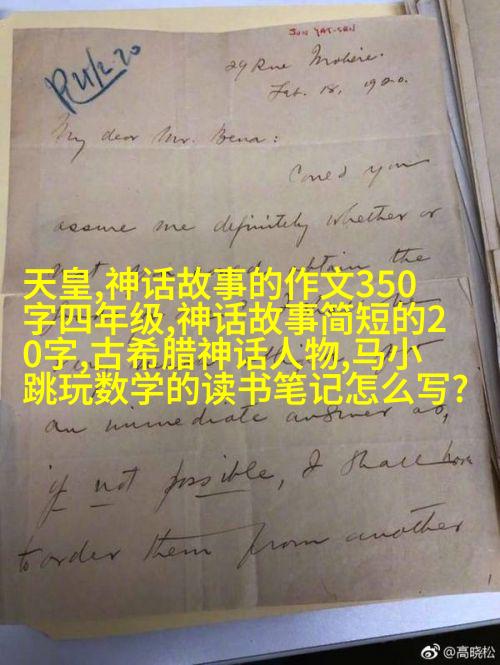 SUN YAT-SEN
R 21/2-20
29 Rue Molière.
Feb. 18, 1920.
My dear Mr. Bena:
Could you
assure me definitely whether or
the
天皇,神话故事的作文350
字四年级,神话故事简短的2
0字,古希腊神话人物,马小
跳玩数学的读书笔记怎么写?
an immediate answer as,
if not possible, I shall have
to order them from another
@高晓松